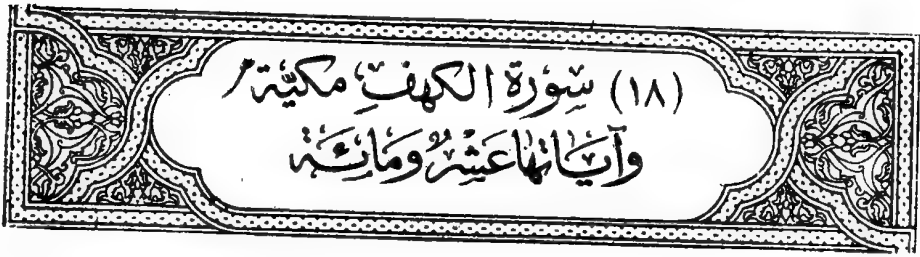 (١٨) سِوُرَة الكهفِ مكيّة
وَآيَاتهَا عَشْرٌ وَمَائِة